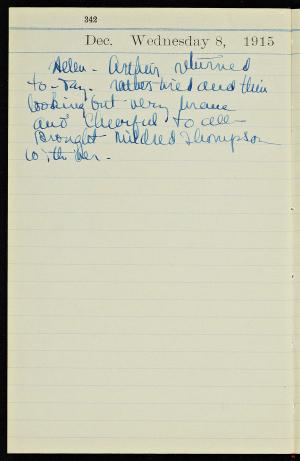 342
Dec. Wednesday 8, 1915
Helen - Arthur returned
to-day. rather tired and thin
looking but very
and cheerful to all -
Brought Mildred Thompson
with her.